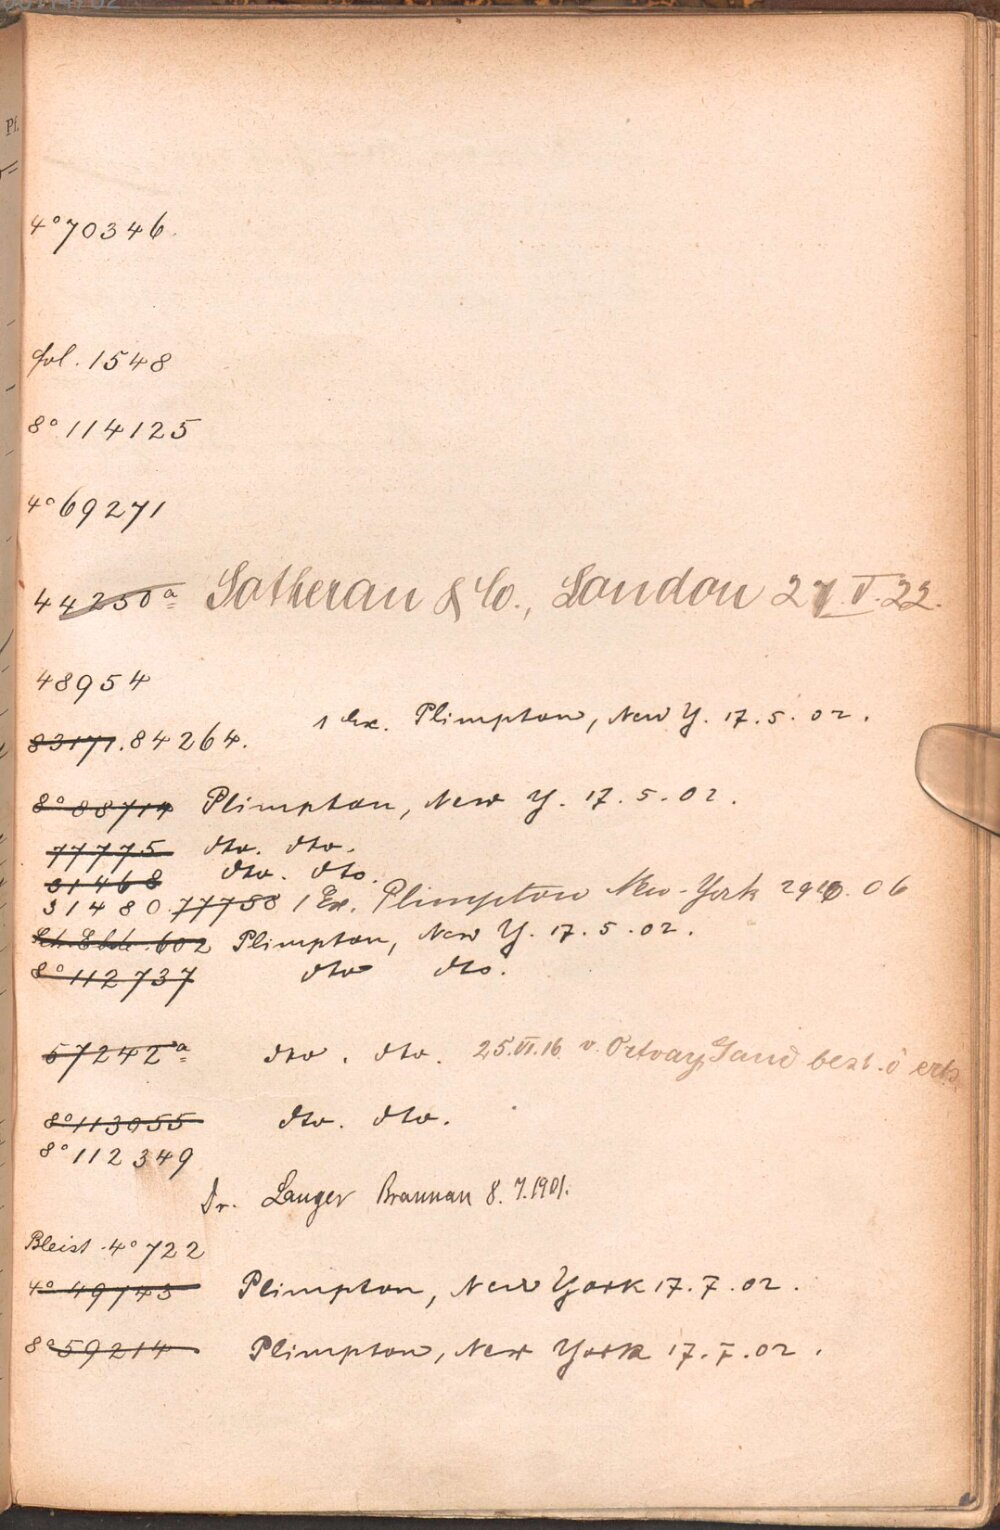 4° 70346.
fol. 1548
8° 114125
4° 69271
44250a Sotheran & Co., London 27.V.22.
48954
1 Ex. Plimpton, New Y. 17.5.02.
83171. 84264.
8° 88714 Plimpton, New Y. 17.5.02.
77775 dto. dto.
81468 dto. dto.
31480. 77758 1 Ex. Plimpton New-York 06
602 Plimpton, New Y. 17.5.02.
8° 112737 dto dto.
57242a dto. dto. 25.VI.16 v. Ortvay
8° 113055 dto. dto.
8° 112349
Dr. Langer Braunau 8.7.1901.
Bleist. 4° 722
4° 49743 Plimpton, New York 17.7.02.
8° 59214 Plimpton, New York 17.7.02.